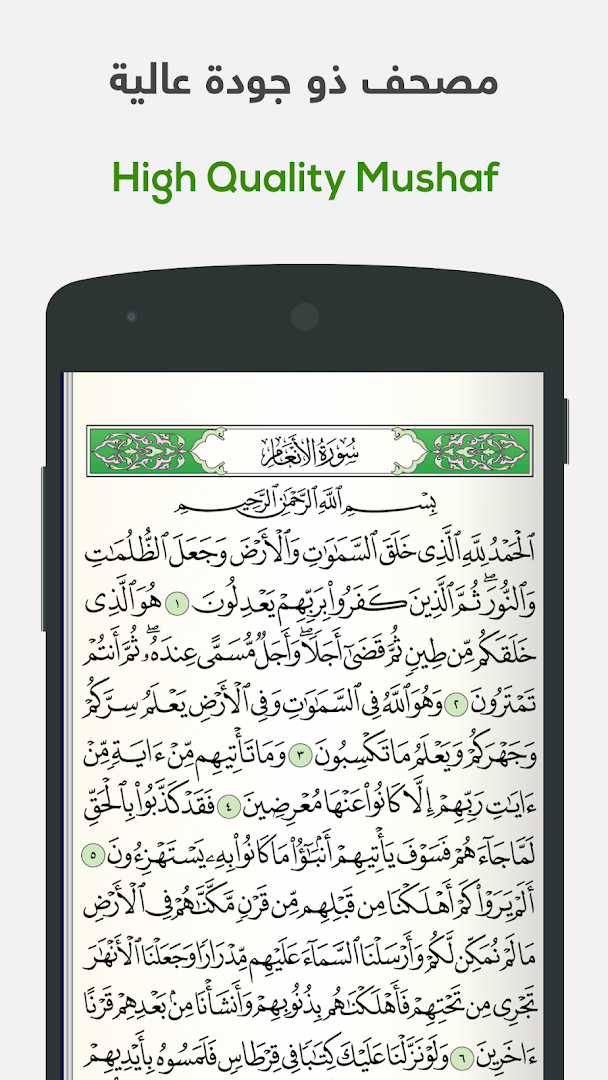 مصحف ذو جودة عالية
High Quality Mushaf
سُورَةُ الأَنْعَامِ
بِسْمِ ٱللَّهِ ٱلرَّحْمَٰنِ ٱلرَّحِيمِ
ٱلْحَمْدُ لِلَّهِ ٱلَّذِى خَلَقَ ٱلسَّمَٰوَٰتِ وَٱلْأَرْضَ وَجَعَلَ ٱلظُّلُمَٰتِ
وَٱلنُّورَۖ ثُمَّ ٱلَّذِينَ كَفَرُوا۟ بِرَبِّهِمْ يَعْدِلُونَ ١ هُوَ ٱلَّذِى
خَلَقَكُم مِّن طِينٍ ثُمَّ قَضَىٰٓ أَجَلًاۖ وَأَجَلٌ مُّسَمًّى عِندَهُۥۖ ثُمَّ أَنتُمْ
تَمْتَرُونَ ٢ وَهُوَ ٱللَّهُ فِى ٱلسَّمَٰوَٰتِ وَفِى ٱلْأَرْضِ يَعْلَمُ سِرَّكُمْ
وَجَهْرَكُمْ وَيَعْلَمُ مَا تَكْسِبُونَ ٣ وَمَا تَأْتِيهِم مِّنْ ءَايَةٍ مِّنْ
ءَايَٰتِ رَبِّهِمْ إِلَّا كَانُوا۟ عَنْهَا مُعْرِضِينَ ٤ فَقَدْ كَذَّبُوا۟ بِٱلْحَقِّ
لَمَّا جَآءَهُمْ فَسَوْفَ يَأْتِيهِمْ أَنۢبَٰٓؤُا۟ مَا كَانُوا۟ بِهِۦ يَسْتَهْزِءُونَ ٥
أَلَمْ يَرَوْا۟ كَمْ أَهْلَكْنَا مِن قَبْلِهِم مِّن قَرْنٍ مَّكَّنَّٰهُمْ فِى ٱلْأَرْضِ
مَا لَمْ نُمَكِّن لَّكُمْ وَأَرْسَلْنَا ٱلسَّمَآءَ عَلَيْهِم مِّدْرَارًا وَجَعَلْنَا ٱلْأَنْهَٰرَ
تَجْرِى مِن تَحْتِهِمْ فَأَهْلَكْنَٰهُم بِذُنُوبِهِمْ وَأَنشَأْنَا مِنۢ بَعْدِهِمْ قَرْنًا
ءَاخَرِينَ ٦ وَلَوْ نَزَّلْنَا عَلَيْكَ كِتَٰبًا فِى قِرْطَاسٍ فَلَمَسُوهُ بِأَيْدِيهِمْ